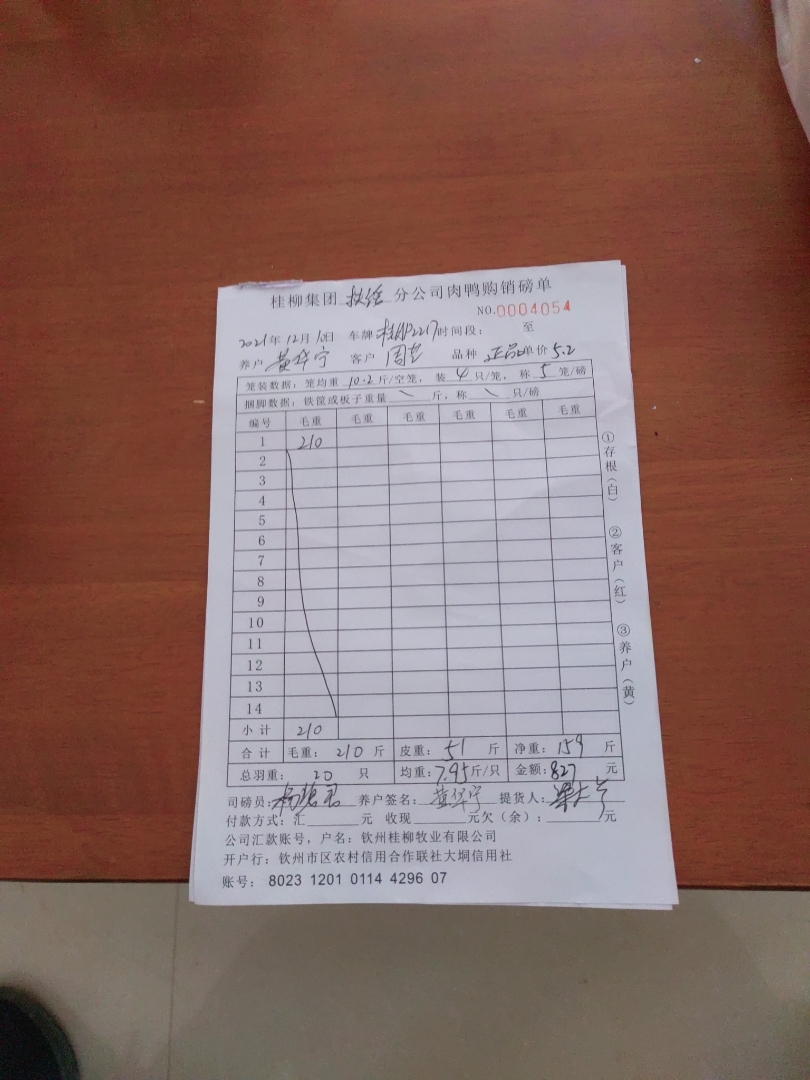 桂柳集团 分公司肉鸭购销磅单
NO.0004054
2021年12月10日 车牌 2217 时间段： 至
养户 黄华宁 客户 周 品种 正品 单价 5.2
笼装数据：笼均重 10.2 斤/空笼， 装 4 只/笼， 称 5 笼/磅
捆脚数据：铁筐或板子重量 \ 斤，称 \ 只/磅
编号 毛重 毛重 毛重 毛重 毛重 毛重
1 210
2
3
4
5
6
7
8
9
10
11
12
13
14
小计 210
合计 毛重： 210 斤 皮重： 51 斤 净重： 159 斤
总羽重： 20 只 均重：7.95斤/只 金额：827 元
司磅员： 养户签名： 黄华宁 提货人：
付款方式：汇 元 收现 元欠（余）： 元
公司汇款账号，户名：钦州桂柳牧业有限公司
开户行：钦州市区农村信用合作联社大垌信用社
账号： 8023 1201 0114 4296 07
①存根（白）
②客户（红）
③养户（黄）